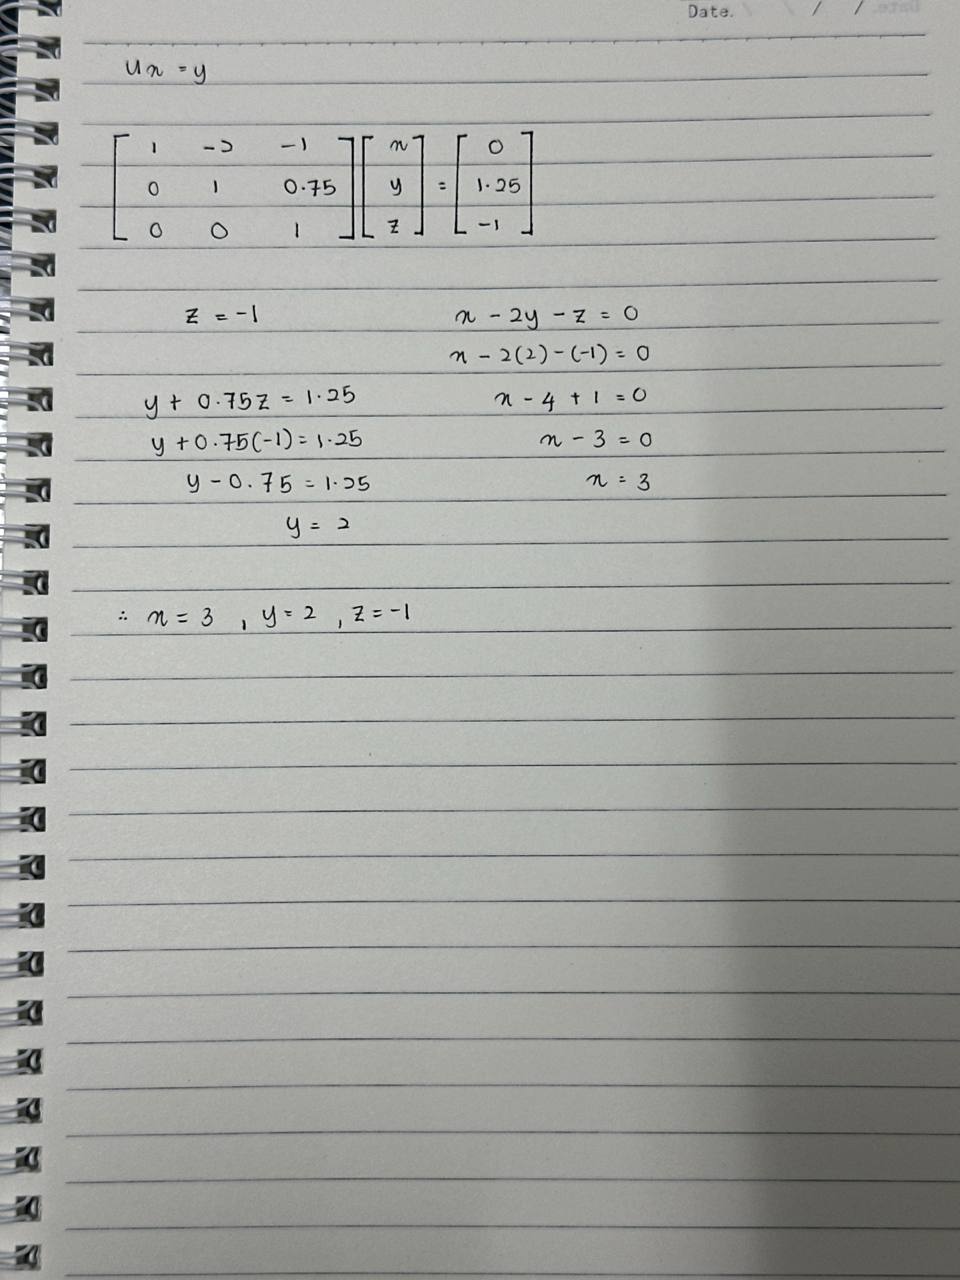 Date. / /
Ux = y
[ 1 -2 -1 ] [ x ] = [ 0 ]
[ 0 1 0.75 ] [ y ] = [ 1.25 ]
[ 0 0 1 ] [ z ] = [ -1 ]
z = -1
y + 0.75z = 1.25
y + 0.75(-1) = 1.25
y - 0.75 = 1.25
y = 2
x - 2y - z = 0
x - 2(2) - (-1) = 0
x - 4 + 1 = 0
x - 3 = 0
x = 3
∴ x = 3 , y = 2 , z = -1